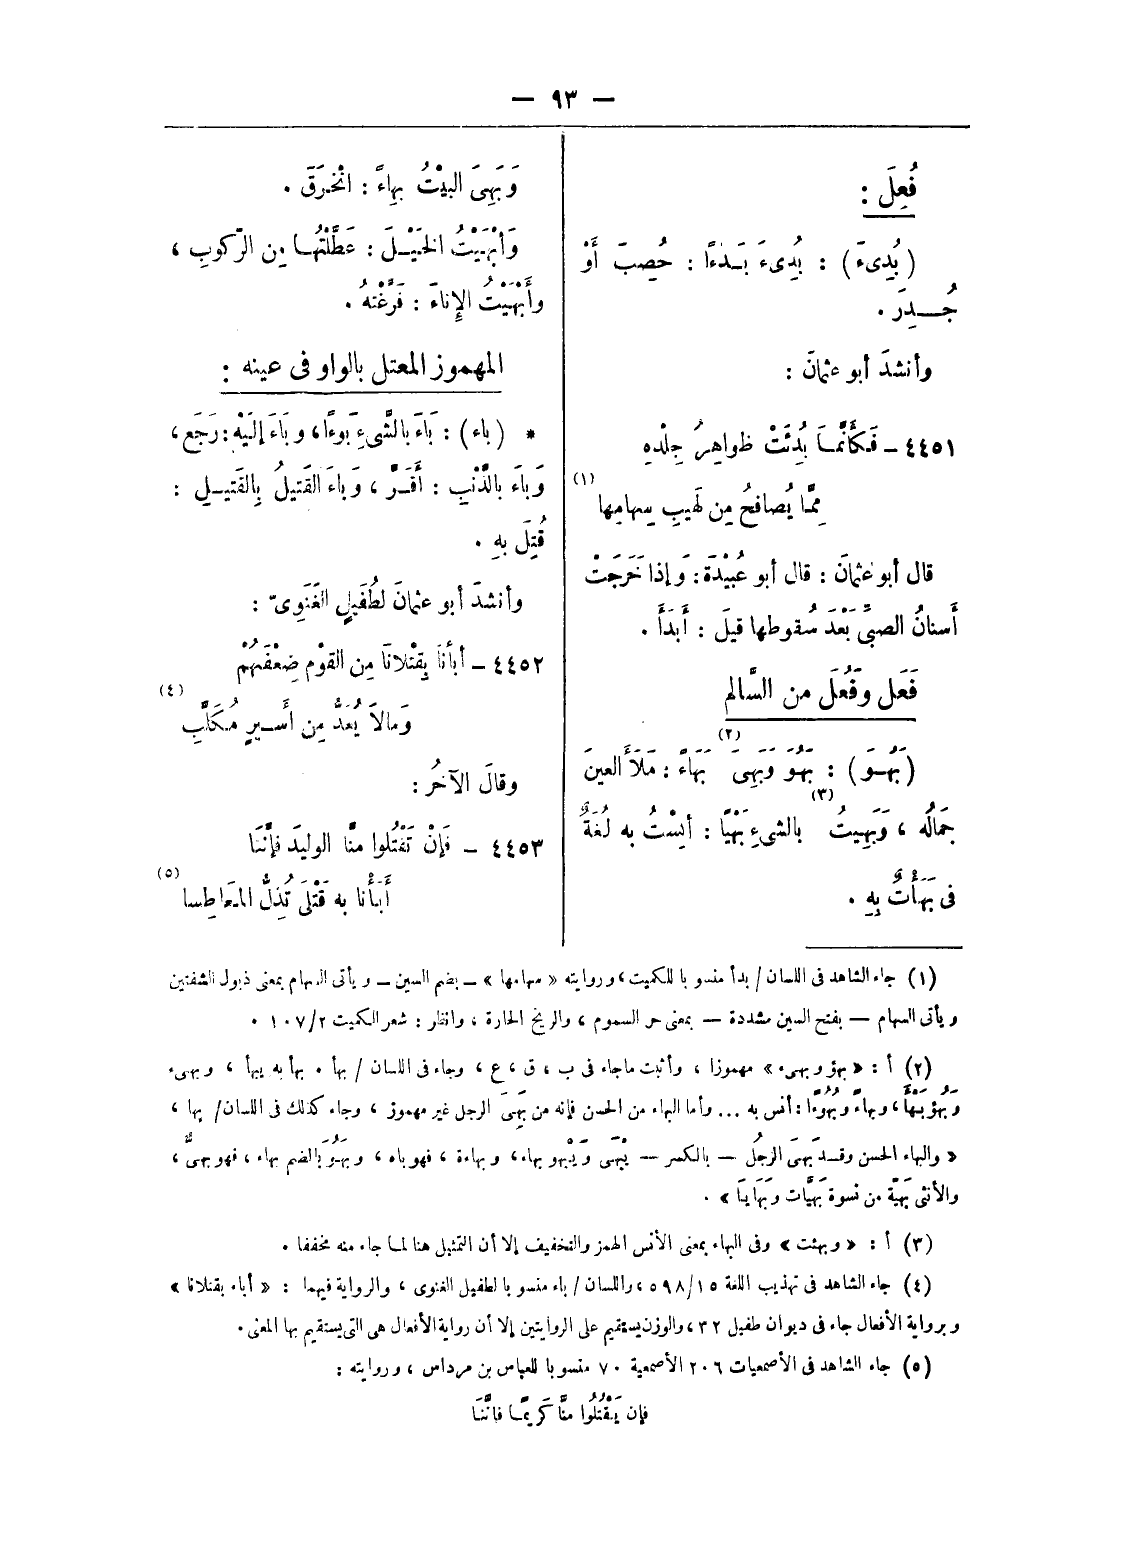 — ٩٣ —
فُعِلَ :
( بُدِىءَ ) : بُدِىءَ بَدْءًا : حُصِبَ أَوْ
جُدِرَ .
وأنشدَ أبو عثمانَ :
٤٤٥١ – فَكَأَنَّمَا بُدِئَتْ ظواهِرُ جِلْدِهِ
مِمَّا يُصافحُ مِن لَهيبِ سِهامِها (١)
قال أبو عثمانَ : قال أبو عُبيْدَةَ : وَإذا خَرَجَتْ
أَسنانُ الصبىِّ بَعْدَ سُقوطها قيلَ : أَبْدَأَ .
فَعَل وفَعُلَ من السَّالم
( بَهُوَ ) : بَهُوَ وَبَهِىَ (٢) بَهَاءً : مَلَأَ العينَ
جَمالُه ، وَبَهِيتُ (٣) بالشىءِ بَهْيًا : أنِسْتُ به لُغَةٌ
فى بَهَأْتُ بِهِ .
وَبَهِىَ البيْتُ بَهاءً : انْخرَقَ .
وَأبْهَيْتُ الخَيْلَ : عَطَّلْتُها مِن الرّكوبِ ،
وأَبْهَيْتُ الإِناءَ : فَرَّغْتهُ .
المهموز المعتل بالواو فى عينه :
* ( باء ) : بَاءَ بالشَّىءِ بَوْءًا ، وبَاءَ إلَيْهِ : رَجَع ،
وَبَاءَ بالذَّنْبِ : أَقَرَّ ، وَباءَ القَتيلُ بِالقَتيلِ :
قُتِلَ بهِ .
وأنشدَ أبو عثمانَ لطُفَيلٍ الغَنَوِىّ :
٤٤٥٢ – أبأنَا بِقتْلانَا مِن القوْمِ ضِعْفَهُمْ
وَمالاَ يُعَدُّ مِن أَسيرٍ مُكَلَّبِ (٤)
وقالَ الآخرُ :
٤٤٥٣ – فَإنْ تَقْتُلوا منَّا الوليدَ فإنَّنَا
أَبَأْنا به قَتْلَى تُذِلُّ المَعَاطِسا (٥)
(١) جاء الشاهد فى اللسان / بدأ منسوبا للكميت ، وروايته « سهامها » – بضم السين – ويأتى السهام بمعنى ذبول الشفتين
ويأتى السهام – بفتح السين مشددة – بمعنى حر السموم ، والريح الحارة ، وانظر : شعر الكميت ١٠٧/٢ .
(٢) أ : « بهؤ وبهىء » مهموزا ، وأثبت ماجاء فى ب ، ق ، ع ، وجاء فى اللسان / بهأ . بهأ به يبهأ ، وبهىء
وَبَهُؤ بَهْأً ، وبهاءً وبُهُوءًا : أنس به ... وأما البهاء من الحسن فإنه من بَهِىَ الرجل غير مهموز ، وجاء كذلك فى اللسان / بها ،
« والبهاء الحسن وقد بَهِىَ الرجُل – بالكسر – يَبْهَى وَيَبْهو بهاء ، وبهاءة ، فهو باه ، وبَهُوَ بالضم بهاء ، فهو بهىٌّ ،
والأنثى بَهِيَّة من نسوة بَهِيَّات وبَهَايَا » .
(٣) أ : « وبهئت » وفى البهاء بمعنى الأنس الهمز والتخفيف إلا أن التمثيل هنا لما جاء منه مخففا .
(٤) جاء الشاهد فى تهذيب اللغة ٥٩٨/١٥ ، واللسان / باء منسوبا لطفيل الغنوى ، والرواية فيهما : « أباء بقتلانا »
وبرواية الأفعال جاء فى ديوان طفيل ٣٢ ، والوزن يستقيم على الروايتين إلا أن رواية الأفعال هى التى يستقيم بها المعنى .
(٥) جاء الشاهد فى الأصمعيات ٢٠٦ الأصمعية ٧٠ منسوبا للعباس بن مرداس ، وروايته :
فإن يَقْتُلُوا منَّا كَرِيمًا فانَّنَا